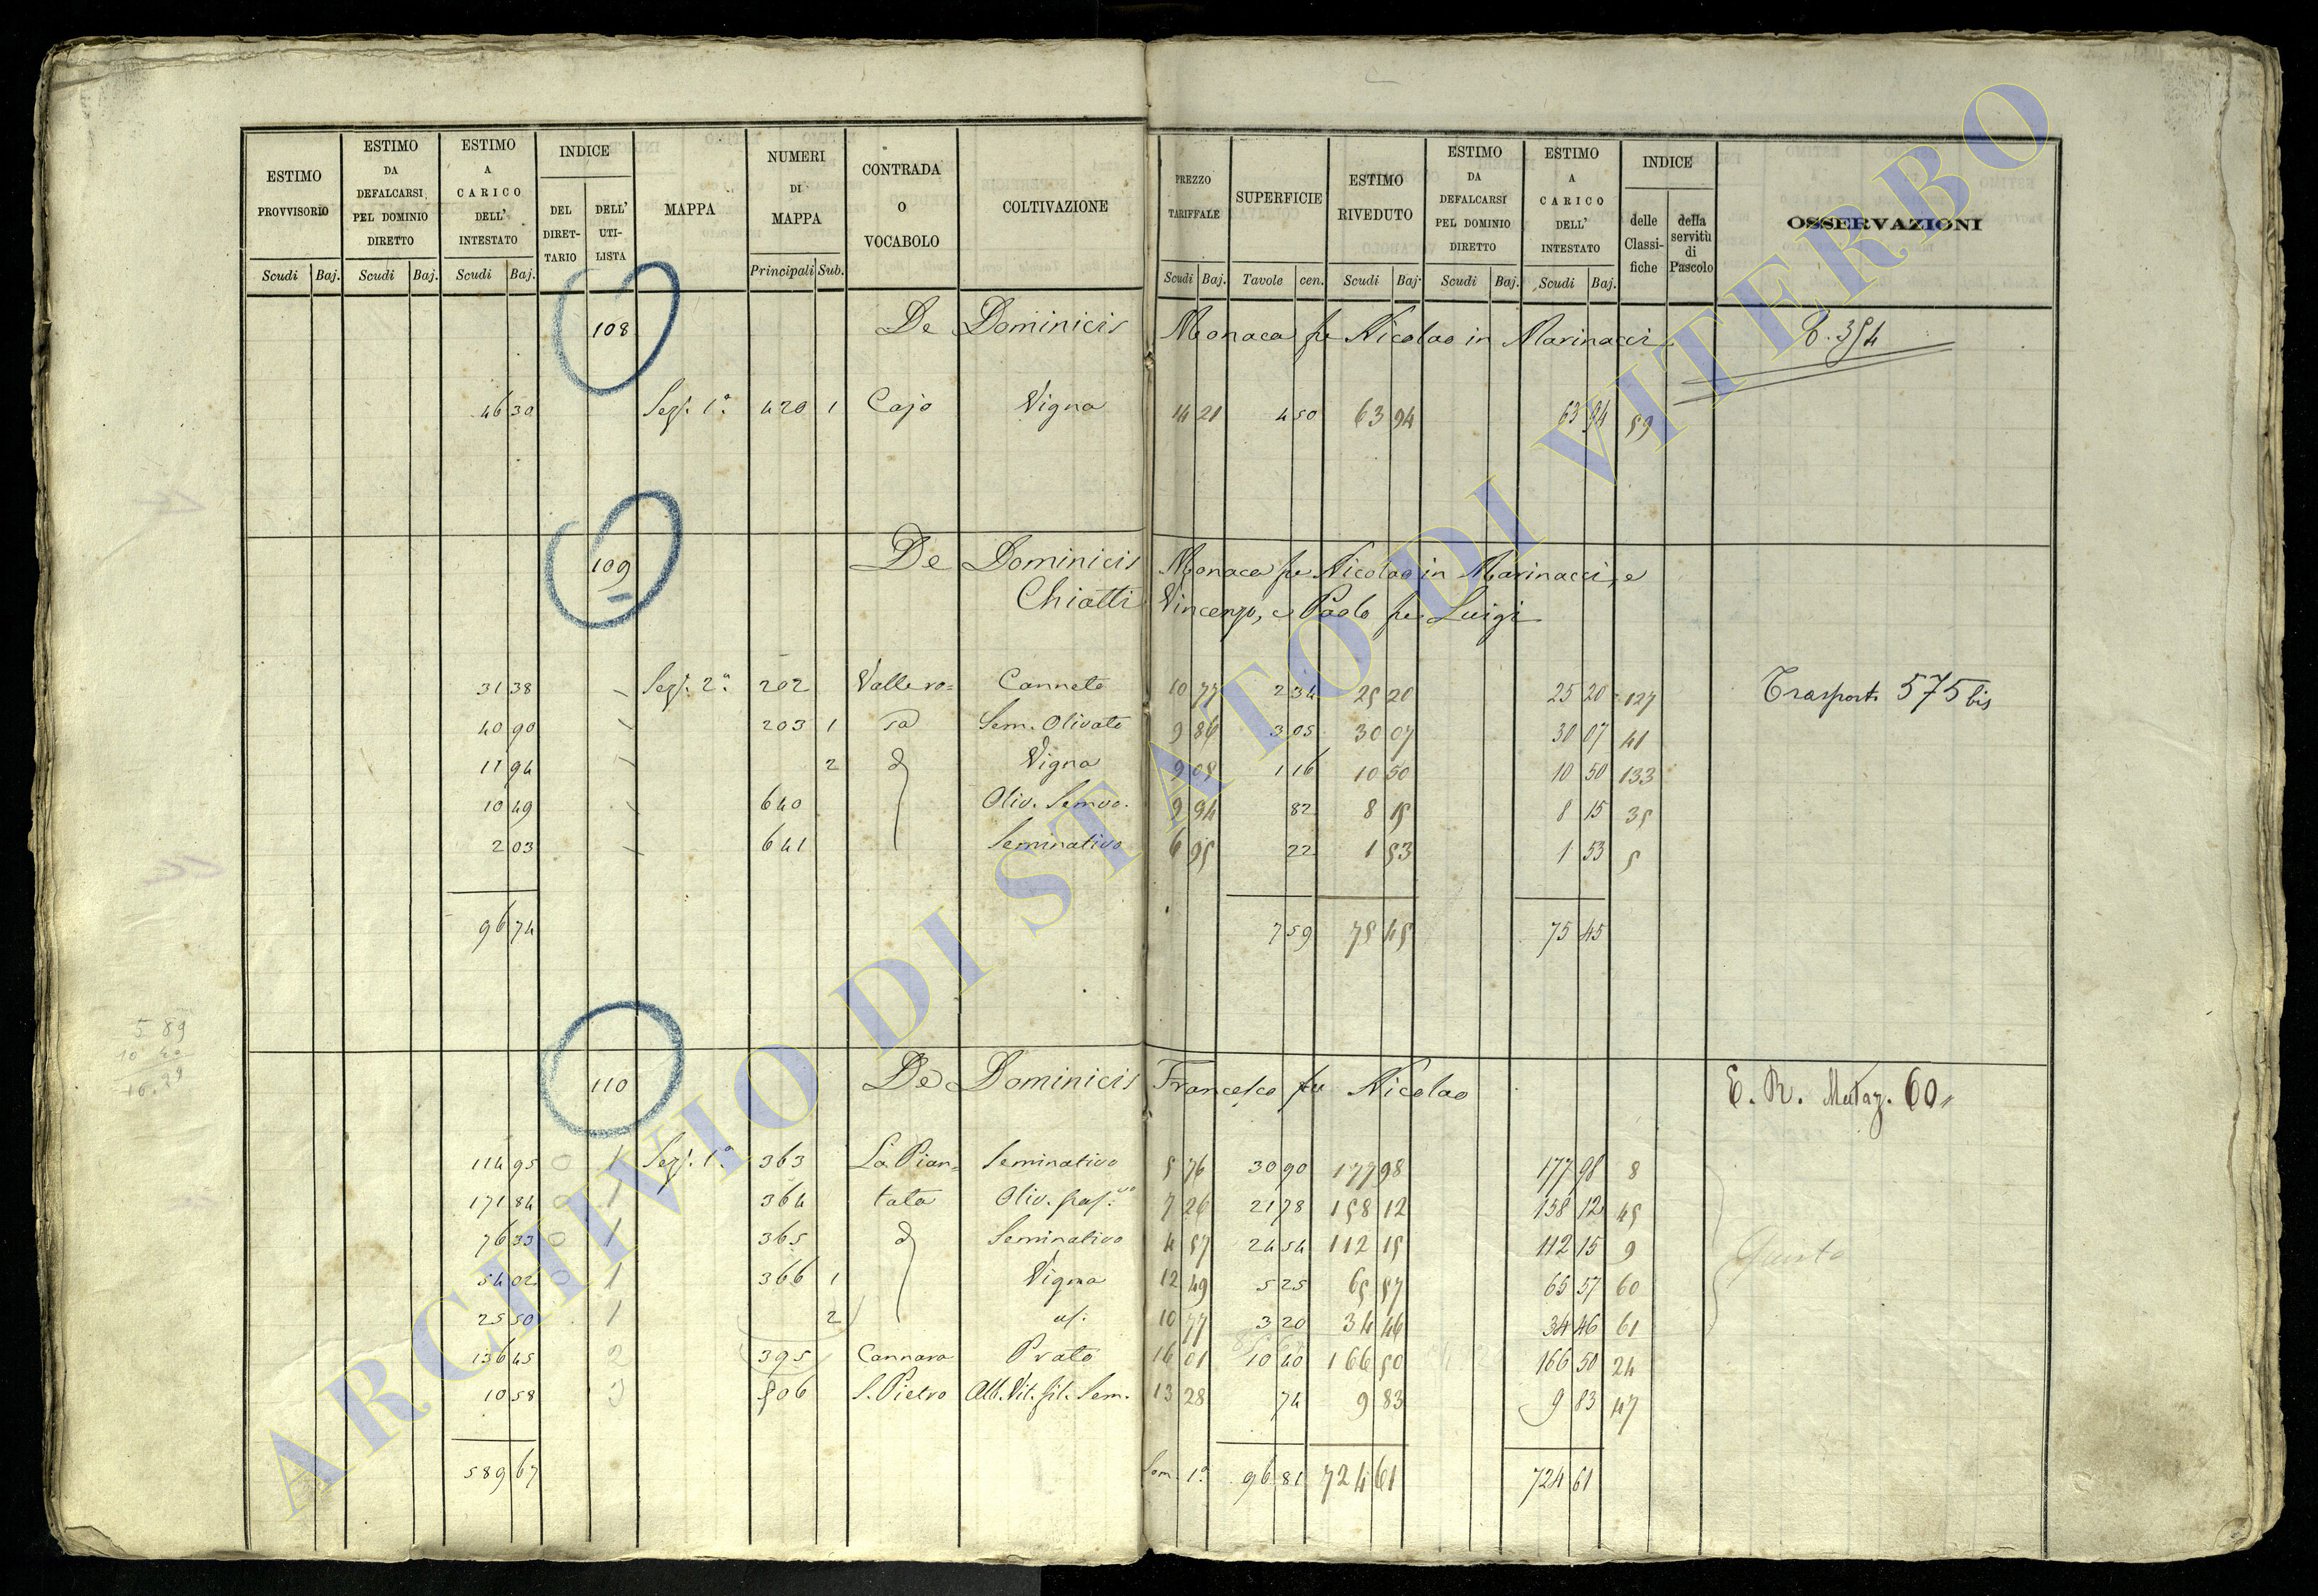 ESTIMO PROVVISORIO | ESTIMO DA DEFALCARSI PEL DOMINIO DIRETTO | ESTIMO A CARICO DELL' INTESTATO | INDICE | MAPPA | NUMERI DI MAPPA | CONTRADA O VOCABOLO | COLTIVAZIONE | PREZZO TARIFFALE | SUPERFICIE | ESTIMO RIVEDUTO | ESTIMO DA DEFALCARSI PEL DOMINIO DIRETTO | ESTIMO A CARICO DELL' INTESTATO | INDICE | OSSERVAZIONI
DEL DIRETTARIO | DELL' UTILISTA | delle Classifiche | della servitù di Pascolo
Scudi | Baj. | Scudi | Baj. | Scudi | Baj. | Principali | Sub. | Scudi | Baj. | Tavole | cen. | Scudi | Baj. | Scudi | Baj. | Scudi | Baj.
108 De Dominicis Monaca fu Nicolao in Marinacci T. 354
46 30 Sez. 1ª 420 1 Cajo Vigna 14 21 4 50 63 94 63 94 59
109 De Dominicis Monaca fu Nicolao in Marinacci, e
Chiatti Vincenzo, e Paolo fu Luigi
31 38 Sez. 2ª 202 Vallero= Canneto 10 77 2 34 25 20 25 20 127 Trasporto 575 bis
40 90 203 1 sa Sem. Olivato 9 86 3 05 30 07 30 07 41
11 94 2 d Vigna 9 05 1 16 10 50 10 50 133
10 49 640 Oliv. Semvo. 9 94 82 8 15 8 15 35
2 03 641 Seminativo 6 95 22 1 53 1 53 5
96 74 7 59 75 45 75 45
5 89
10 40
16.29
110 De Dominicis Francesco fu Nicolao E. R. Mutaz. 60
114 95 0 1 Sez. 1ª 363 La Pian= Seminativo 5 76 30 90 177 98 177 98 8
171 84 0 1 364 tata Oliv. pas.vo 7 26 21 78 158 12 158 12 45
76 33 0 1 365 d Seminativo 4 57 24 54 112 15 112 15 9
54 02 0 1 366 1 Vigna 12 49 5 25 65 57 65 57 60
25 50 1 2 10 77 3 20 34 46 34 46 61
136 45 2 395 Cannara Prato 16 01 10 40 166 50 166 50 24
10 58 3 506 S. Pietro Alb. Vit. fil. Sem. 13 28 74 9 83 9 83 47
589 67 Som. 1ª 96 81 724 61 724 61
ARCHIVIO DI STATO DI VITERBO